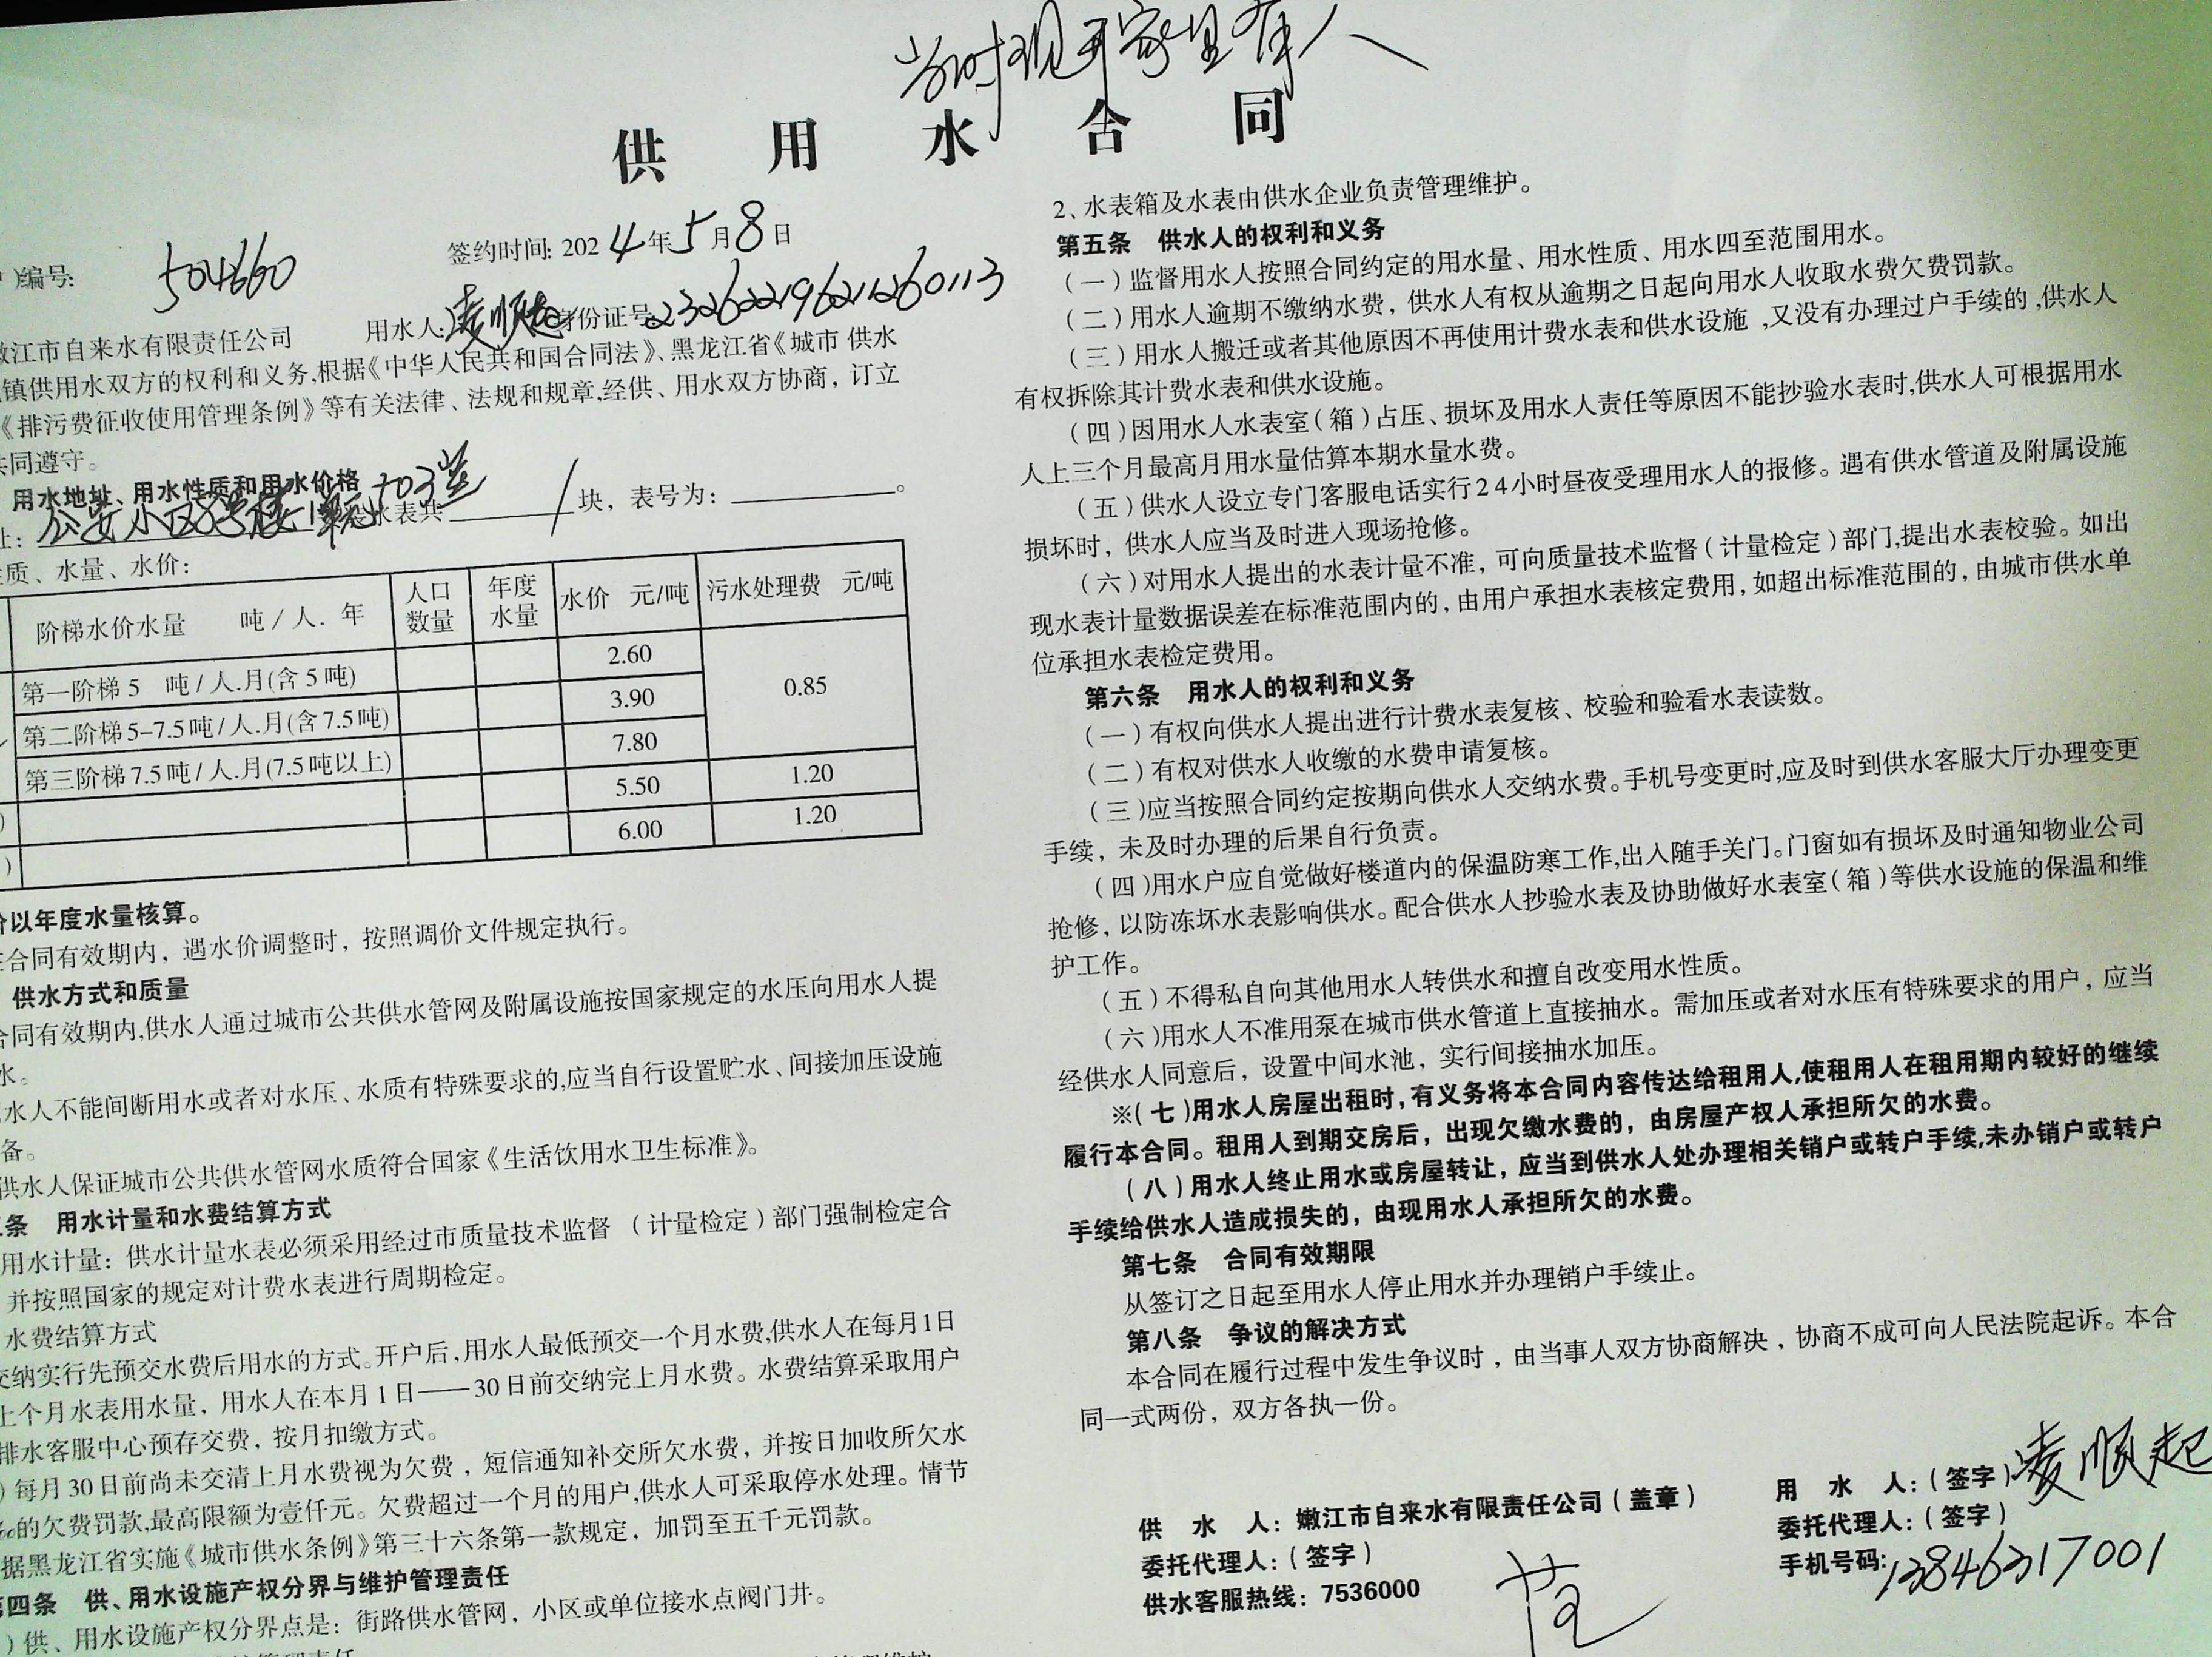 当时现开家里有人
供用水合同
)编号: 504660
签约时间: 2024年5月8日
江市自来水有限责任公司
用水人: 凌顺起 身份证号: 232622196212260113
镇供用水双方的权利和义务,根据《中华人民共和国合同法》、黑龙江省《城市 供水
《排污费征收使用管理条例》等有关法律、法规和规章,经供、用水双方协商, 订立
共同遵守。
用水地址、用水性质和用水价格
止: 公安小区8号楼1单元703 水表共 1 块, 表号为: 。
质、水量、水价:
阶梯水价水量 吨/人. 年 人口数量 年度水量 水价 元/吨 污水处理费 元/吨
第一阶梯 5 吨/人.月(含5吨) 2.60 0.85
第二阶梯5-7.5吨/人.月(含7.5吨) 3.90
第三阶梯7.5吨/人.月(7.5吨以上) 7.80
) 5.50 1.20
) 6.00 1.20
价以年度水量核算。
在合同有效期内, 遇水价调整时, 按照调价文件规定执行。
供水方式和质量
合同有效期内,供水人通过城市公共供水管网及附属设施按国家规定的水压向用水人提
水。
水人不能间断用水或者对水压、水质有特殊要求的,应当自行设置贮水、间接加压设施
备。
供水人保证城市公共供水管网水质符合国家《生活饮用水卫生标准》。
条 用水计量和水费结算方式
用水计量: 供水计量水表必须采用经过市质量技术监督 (计量检定)部门强制检定合
并按照国家的规定对计费水表进行周期检定。
水费结算方式
交纳实行先预交水费后用水的方式。开户后,用水人最低预交一个月水费,供水人在每月1日
上个月水表用水量, 用水人在本月1日——30日前交纳完上月水费。水费结算采取用户
排水客服中心预存交费, 按月扣缴方式。
)每月30日前尚未交清上月水费视为欠费, 短信通知补交所欠水费, 并按日加收所欠水
‰的欠费罚款,最高限额为壹仟元。欠费超过一个月的用户,供水人可采取停水处理。情节
据黑龙江省实施《城市供水条例》第三十六条第一款规定, 加罚至五千元罚款。
第四条 供、用水设施产权分界与维护管理责任
)供、用水设施产权分界点是: 街路供水管网, 小区或单位接水点阀门井。
2、水表箱及水表由供水企业负责管理维护。
第五条 供水人的权利和义务
(一)监督用水人按照合同约定的用水量、用水性质、用水四至范围用水。
(二)用水人逾期不缴纳水费, 供水人有权从逾期之日起向用水人收取水费欠费罚款。
(三)用水人搬迁或者其他原因不再使用计费水表和供水设施,又没有办理过户手续的,供水人
有权拆除其计费水表和供水设施。
(四)因用水人水表室(箱)占压、损坏及用水人责任等原因不能抄验水表时,供水人可根据用水
人上三个月最高月用水量估算本期水量水费。
(五)供水人设立专门客服电话实行24小时昼夜受理用水人的报修。遇有供水管道及附属设施
损坏时, 供水人应当及时进入现场抢修。
(六)对用水人提出的水表计量不准, 可向质量技术监督(计量检定)部门,提出水表校验。如出
现水表计量数据误差在标准范围内的, 由用户承担水表核定费用, 如超出标准范围的, 由城市供水单
位承担水表检定费用。
第六条 用水人的权利和义务
(一)有权向供水人提出进行计费水表复核、校验和验看水表读数。
(二)有权对供水人收缴的水费申请复核。
(三)应当按照合同约定按期向供水人交纳水费。手机号变更时,应及时到供水客服大厅办理变更
手续, 未及时办理的后果自行负责。
(四)用水户应自觉做好楼道内的保温防寒工作,出入随手关门。门窗如有损坏及时通知物业公司
抢修, 以防冻坏水表影响供水。配合供水人抄验水表及协助做好水表室(箱)等供水设施的保温和维
护工作。
(五)不得私自向其他用水人转供水和擅自改变用水性质。
(六)用水人不准用泵在城市供水管道上直接抽水。需加压或者对水压有特殊要求的用户, 应当
经供水人同意后, 设置中间水池, 实行间接抽水加压。
※(七)用水人房屋出租时,有义务将本合同内容传达给租用人,使租用人在租用期内较好的继续
履行本合同。租用人到期交房后, 出现欠缴水费的, 由房屋产权人承担所欠的水费。
(八)用水人终止用水或房屋转让, 应当到供水人处办理相关销户或转户手续,未办销户或转户
手续给供水人造成损失的, 由现用水人承担所欠的水费。
第七条 合同有效期限
从签订之日起至用水人停止用水并办理销户手续止。
第八条 争议的解决方式
本合同在履行过程中发生争议时, 由当事人双方协商解决, 协商不成可向人民法院起诉。本合
同一式两份, 双方各执一份。
供水人: 嫩江市自来水有限责任公司(盖章)
委托代理人:(签字)
供水客服热线: 7536000
用水人:(签字) 凌顺起
委托代理人:(签字)
手机号码: 13846317001